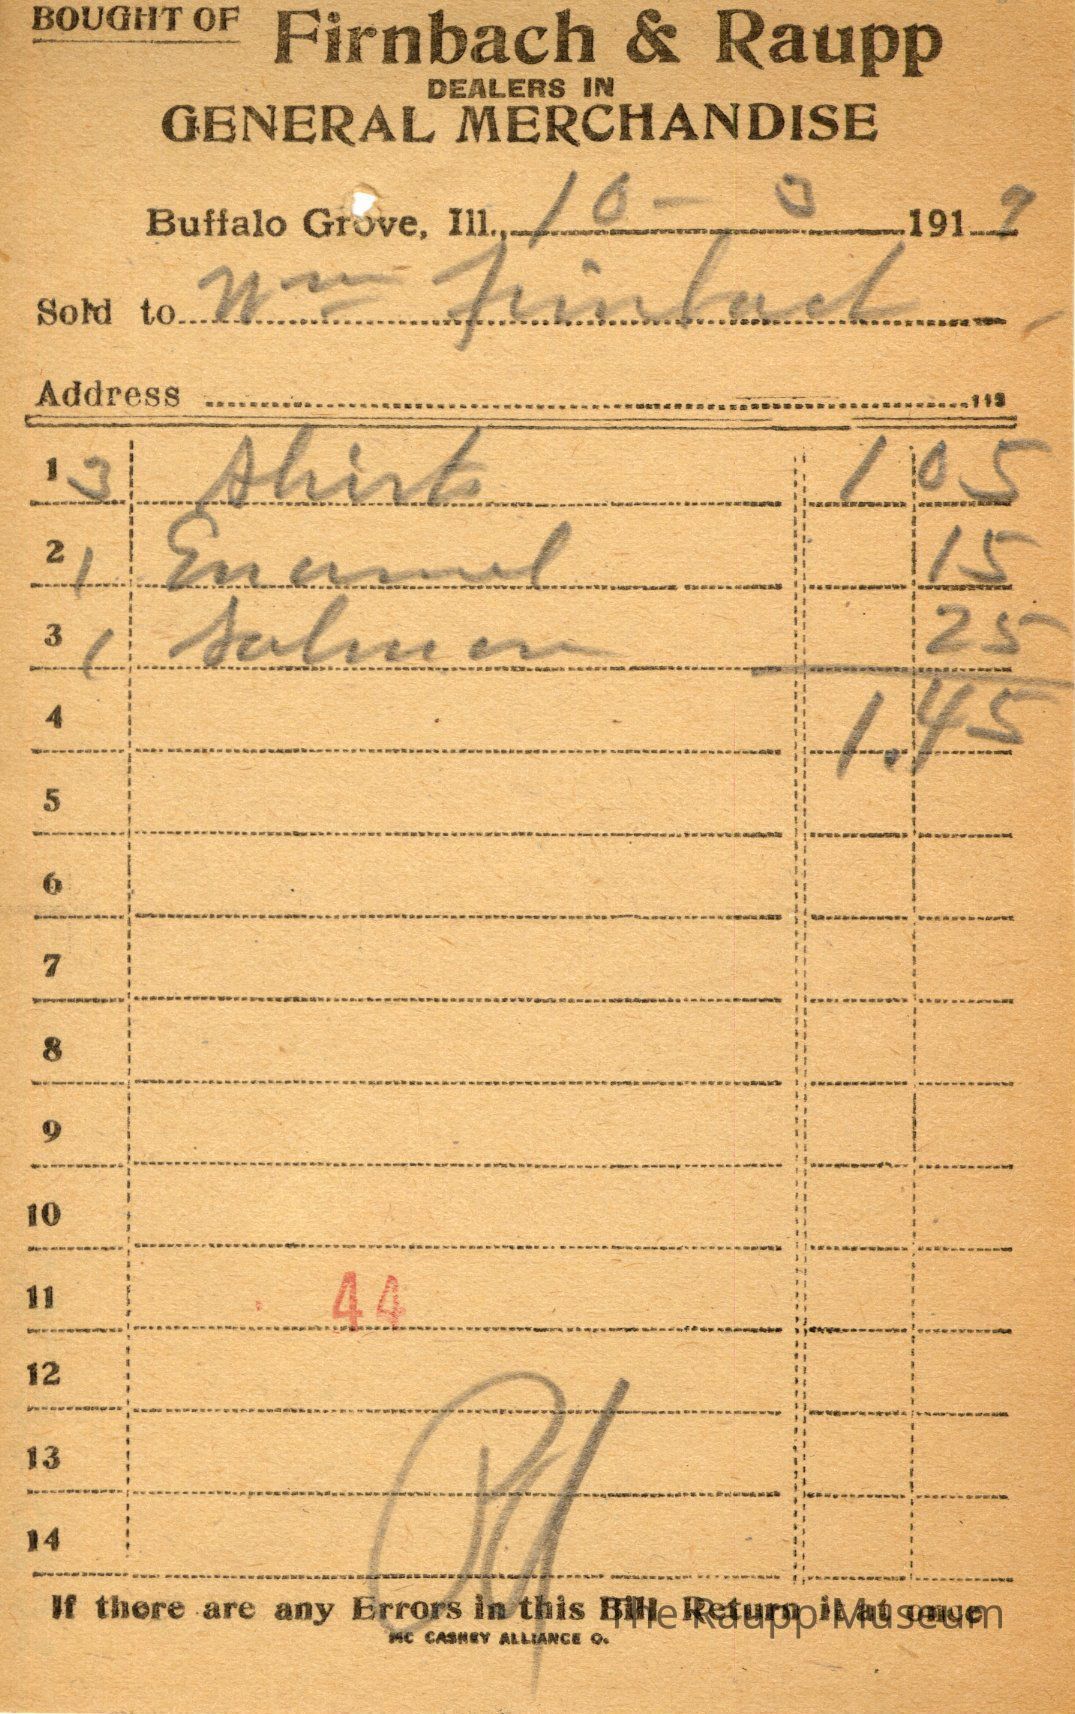 BOUGHT OF Firnbach & Raupp
DEALERS IN
GENERAL MERCHANDISE
Buffalo Grove, Ill., 10 - 1919
Sold to Wm Firnbach
Address
1 3 Shirts 1 05
2 1 Enamel 15
3 1 Salmon 25
4 1.45
5
6
7
8
9
10
11 44
12
13
14
Pd
If there are any Errors in this Bill Return it at once
The Raupp Museum
MC CASKEY ALLIANCE O.